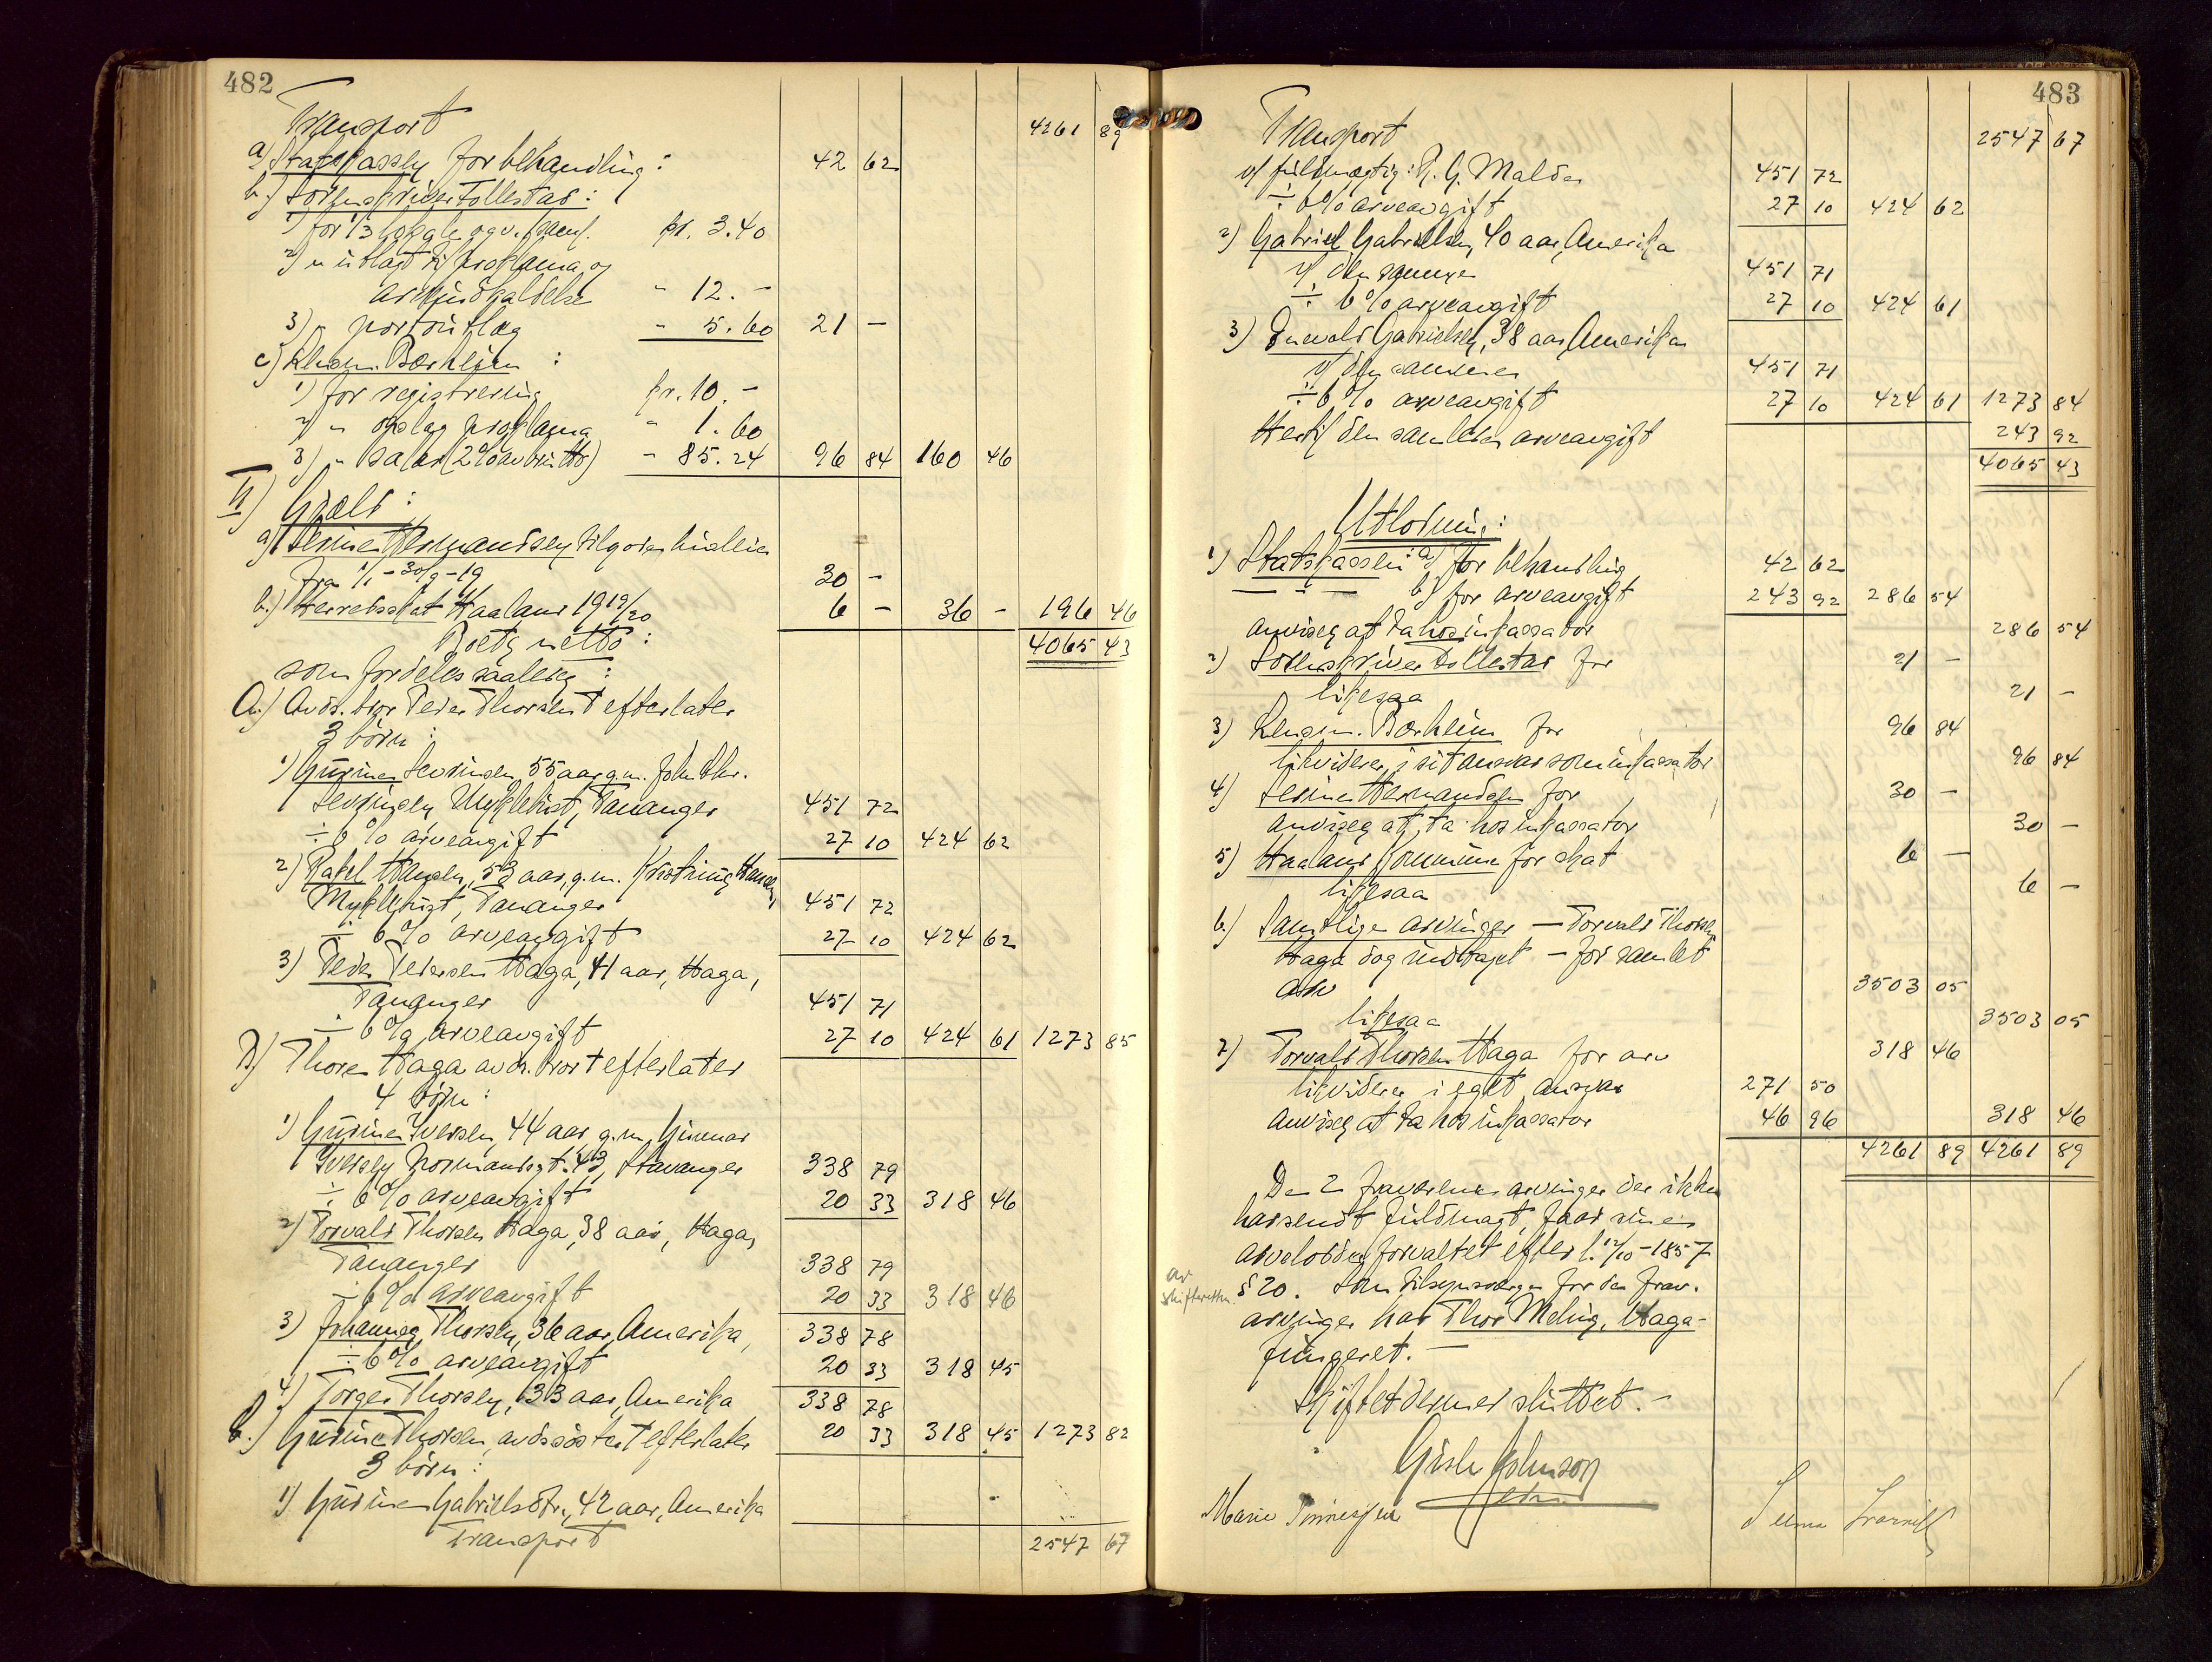 482
Transport 4261 89
a) Statskassen for behandling: 42 62
b.) Sorenskriver Tollestad:
1) for 1/3 kr. 3.40
2) " utlagt til proklama og
arvindkaldelse " 12.-
3) " portoutlæg " 5.60 21 -
c) Lensm. Borheim:
1) for registrering kr. 10.-
2) " opslag proklama " 1.60
3) " salær (2% av brutto) " 85.24 96 84 160 46
II) Gjæld:
a) Serine Hermandsen tilgode husleie
fra 1/1-30/9-19 30 -
b.) Herredsskat Haaland 1919/20 6 - 36 - 196 46
Boets netto: 4065 43
som fordeles saaledes:
A.) Avds. bror Peder Thorsen † efterlater
3 børn:
1) Gurine Sevrinsen 55 aar g.m. John Chr.
Sevrinsen Myklebust, Tananger 451 72
÷ 6% arveavgift 27 10 424 62
2) Rakel Hansen, 53 aar, g.m. Hansen,
Myklebust, Tananger 451 72
÷ 6% arveavgift 27 10 424 62
3) Peder Pedersen Haga, 41 aar, Haga,
Tananger 451 71
÷ 6% arveavgift 27 10 424 61 1273 85
B) Thore Haga avds. bror † efterlater
4 børn:
1) Gurine Iversen, 44 aar, g.m. Gunnar
Iversen Normandsgt. 43, Stavanger 338 79
÷ 6% arveavgift 20 33 318 46
2) Torvald Thorsen Haga, 38 aar, Haga,
Tananger 338 79
÷ 6% arveavgift 20 33 318 46
3) Johannes Thorsen, 36 aar, Amerika, 338 78
÷ 6% arveavgift 20 33 318 45
4) Torger Thorsen, 33 aar, Amerika 338 78
C.) Gurine Thorsen, avds søster † efterlater 20 33 318 45 1273 82
3 børn:
1) Gurine Gabrielsdtr., 42 aar, Amerika
Transport 2547 67
483
Transport 2547 67
v/ fuldmægtig: R. G. Malde 451 72
÷ 6% arveavgift 27 10 424 62
2) Gabriel Gabrielsen, 40 aar, Amerika
v/ den samme 451 71
÷ 6% arveavgift 27 10 424 61
3) Enevald Gabrielsen, 38 aar, Amerika
v/ den samme 451 71
÷ 6% arveavgift 27 10 424 61 1273 84
Hertil den samlede arveavgift 243 92
4065 43
Utlodning:
1) Statskassen a) for behandling 42 62
— " — b) for arveavgift 243 92 286 54
anvises at ta hos inkassator 286 54
2) Sorenskriver Tollestad for 21 -
likesaa 21 -
3) Lensm. Borheim for 96 84
likviderer i sit ansvar som inkassator 96 84
4) Serine Hermandsen for 30 -
anvises at ta hos inkassator 30 -
5) Haaland kommune for skat 6 -
likesaa 6 -
6.) Samtlige arvinger — Torvald Thorsen
Haga dog undtaget — for samlet
arv 3503 05
likesaa 3503 05
7) Torvald Thorsen Haga for arv 318 46
likviderer i eget ansvar 271 50
anvises at ta hos inkassator 46 96 318 46
4261 89 4261 89
De 2 fraværende arvinger der ikke
har sendt fuldmagt, faar sine
arvelodder forvaltet efter l. 12/10-1857
§ 20. Som tilsynsverge for de frav.
av skifteretten
arvinger har Thor Meling, Haga
fungeret. —
Skiftet dermed sluttet. -
Gisle Johnson
Marie Tønnessen